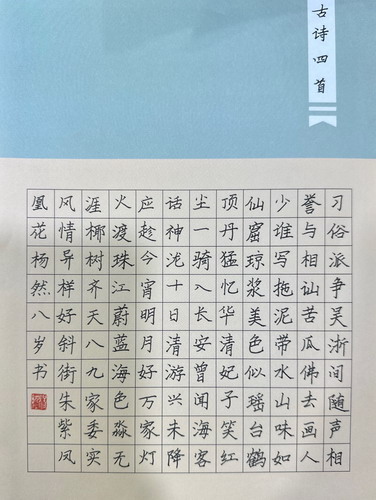 古诗四首
习俗派争吴浙间随声相
誉与相讪苦瓜佛去画人
少谁写拖泥带水山味如
仙窟琼浆美色似瑶台鹤
顶丹猛忆华清妃子笑红
尘一骑入长安曾闻海客
话神沲十日清游兴未降
应趁今宵明月好万家灯
火渡珠江蔚蓝海色淼无
涯椰树齐天八九家委实
风情异样好斜街朱紫凤
凰花杨然八岁书